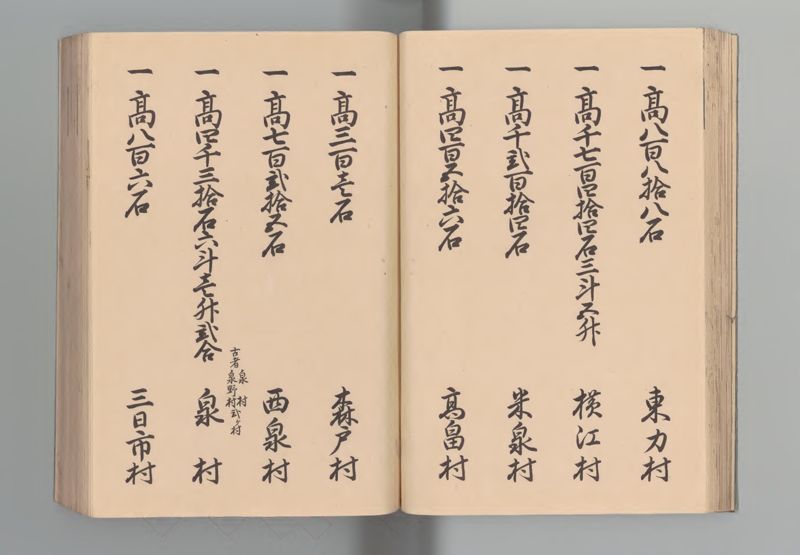 一高八百八拾八石 東力村
一高千七百四拾四石三斗五升 横江村
一高千弐百拾四石 米泉村
一高四百五拾六石 高畠村
一高三百壱石 森戸村
一高七百弐拾五石 西泉村
一高四千三拾石六斗壱升弐合 泉村
古者泉村
泉野村弐ヶ村
一高八百六石 三日市村